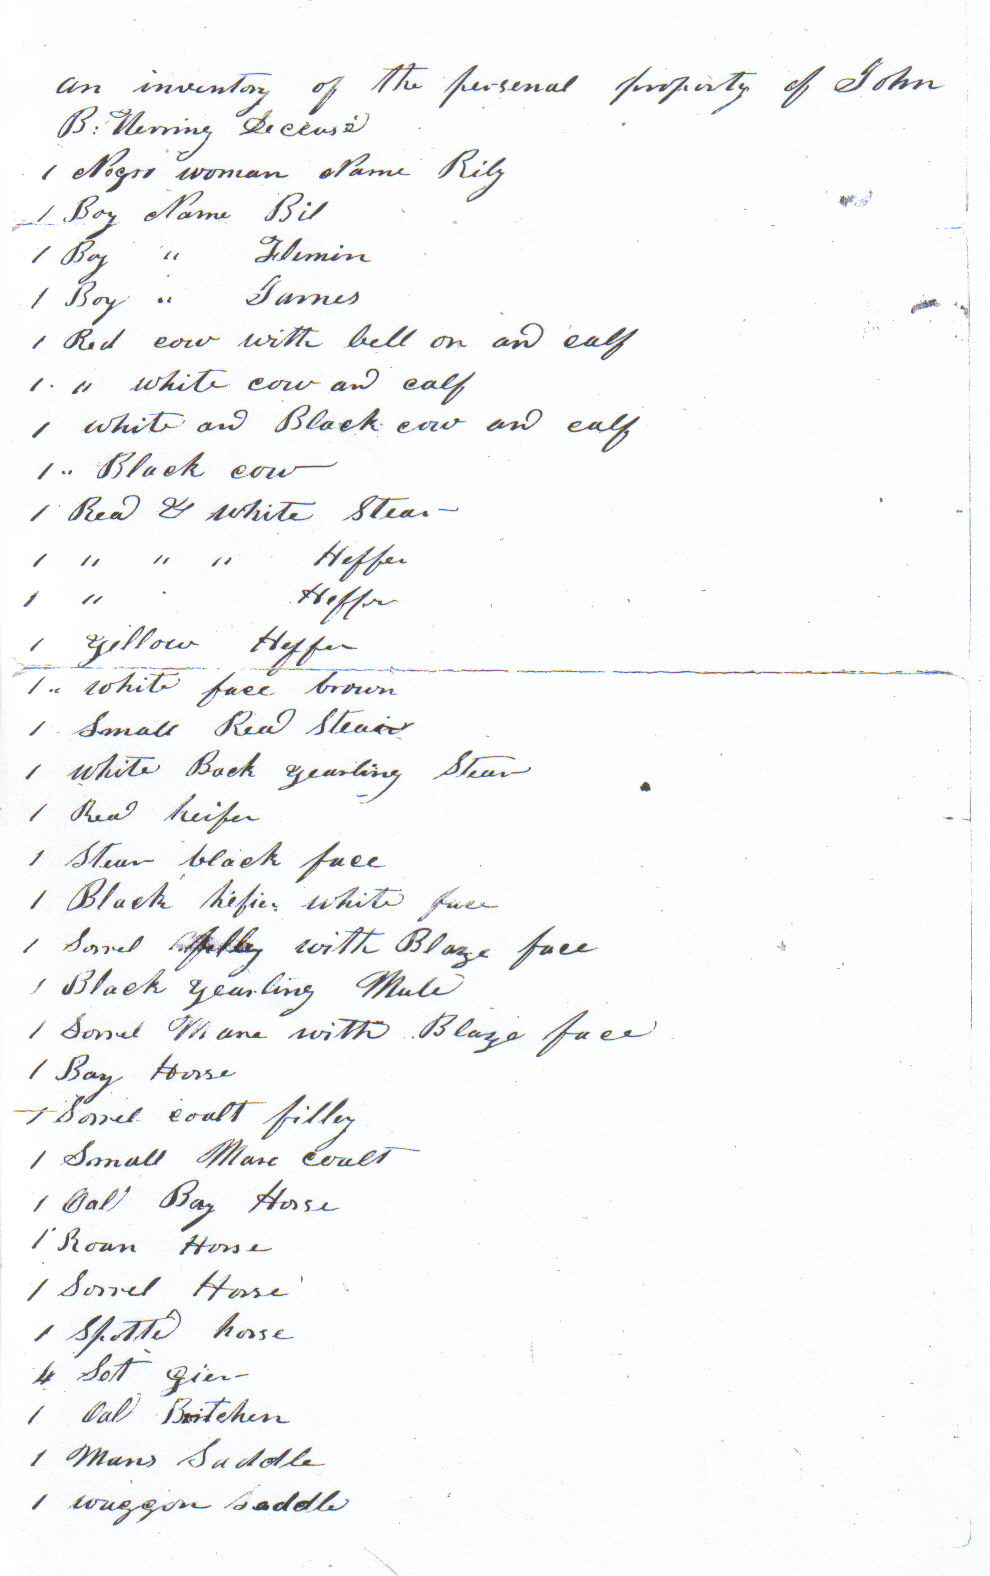 an inventory of the personal property of John
B. Herring Deceasd
1 Negro woman Name Rily
1 Boy Name Bil
1 Boy " Flemin
1 Boy " James
1 Red cow with bell on and calf
1 " white cow and calf
1 white and Black cow and calf
1 " Black cow
1 Read & white Stear
1 " " " Heffer
1 " Heffer
1 yellow Heffer
1 " white face brown
1 Small Read Stear
1 white Back yearling Stear
1 Read heifer
1 Stear black face
1 Black hefier white face
1 Sorrel filley with Blaze face
1 Black yearling Mule
1 Sorrel Mare with Blaze face
1 Bay Horse
1 Sorrel coult filley
1 Small Mare coult
1 Oal Bay Horse
1 Roan Horse
1 Sorrel Horse
1 Spotted horse
4 Sett gier
1 Oal Britchen
1 Mans Saddle
1 waggon saddle